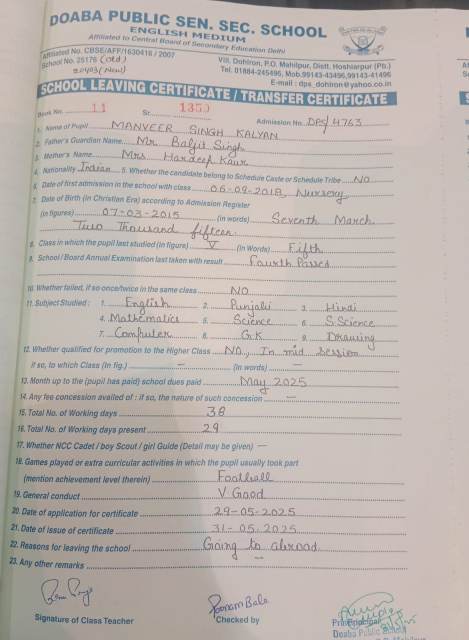 DOABA PUBLIC SEN. SEC. SCHOOL
ENGLISH MEDIUM
Affiliated to Central Board of Secondary Education Delhi
Affiliated No. CBSE/AFF/1630416 / 2007
School No. 25176 (Old)
20493 (New)
Vill. Dohlron, P.O. Mahilpur, Distt. Hoshiarpur (Pb.)
Tel. 01884-245496, Mob.99143-43496,99143-41496
E-mail : dps_dohlron@yahoo.co.in
SCHOOL LEAVING CERTIFICATE / TRANSFER CERTIFICATE
Book No. 11 Sr. 1350 Admission No. DPS/4763
1. Name of Pupil MANVEER SINGH KALYAN
2. Father's Guardian Name Mr. Baljit Singh
3. Mother's Name Mrs Hardeep Kaur
4. Nationality Indian 5. Whether the candidate belong to Schedule Caste or Schedule Tribe NO
6. Date of first admission in the school with class 06-09-2018, Nursery
7. Date of Birth (in Christian Era) according to Admission Register
(in figures) 07-03-2015 (in words) Seventh March
Two Thousand fifteen
8. Class in which the pupil last studied (in figure) V (in Words) Fifth
9. School / Board Annual Examination last taken with result Fourth Passed
10. Whether failed, if so once/twice in the same class NO
11. Subject Studied : 1. English 2. Punjabi 3. Hindi
4. Mathematics 5. Science 6. S.Science
7. Computer 8. G.K 9. Drawing
12. Whether qualified for promotion to the Higher Class NO, In mid Session
if so, to which Class (In fig.) — (In words) —
13. Month up to the (pupil has paid) school dues paid May 2025
14. Any fee concession availed of : if so, the nature of such concession —
15. Total No. of Working days 38
16. Total No. of Working days present 29
17. Whether NCC Cadet / boy Scout / girl Guide (Detail may be given) —
18. Games played or extra curricular activities in which the pupil usually took part
(mention achievement level therein) Football
19. General conduct V Good
20. Date of application for certificate 29-05-2025
21. Date of issue of certificate 31-05-2025
22. Reasons for leaving the school Going to abroad
23. Any other remarks —
Poonam Bala
Signature of Class Teacher Checked by Principal
Doaba Public School